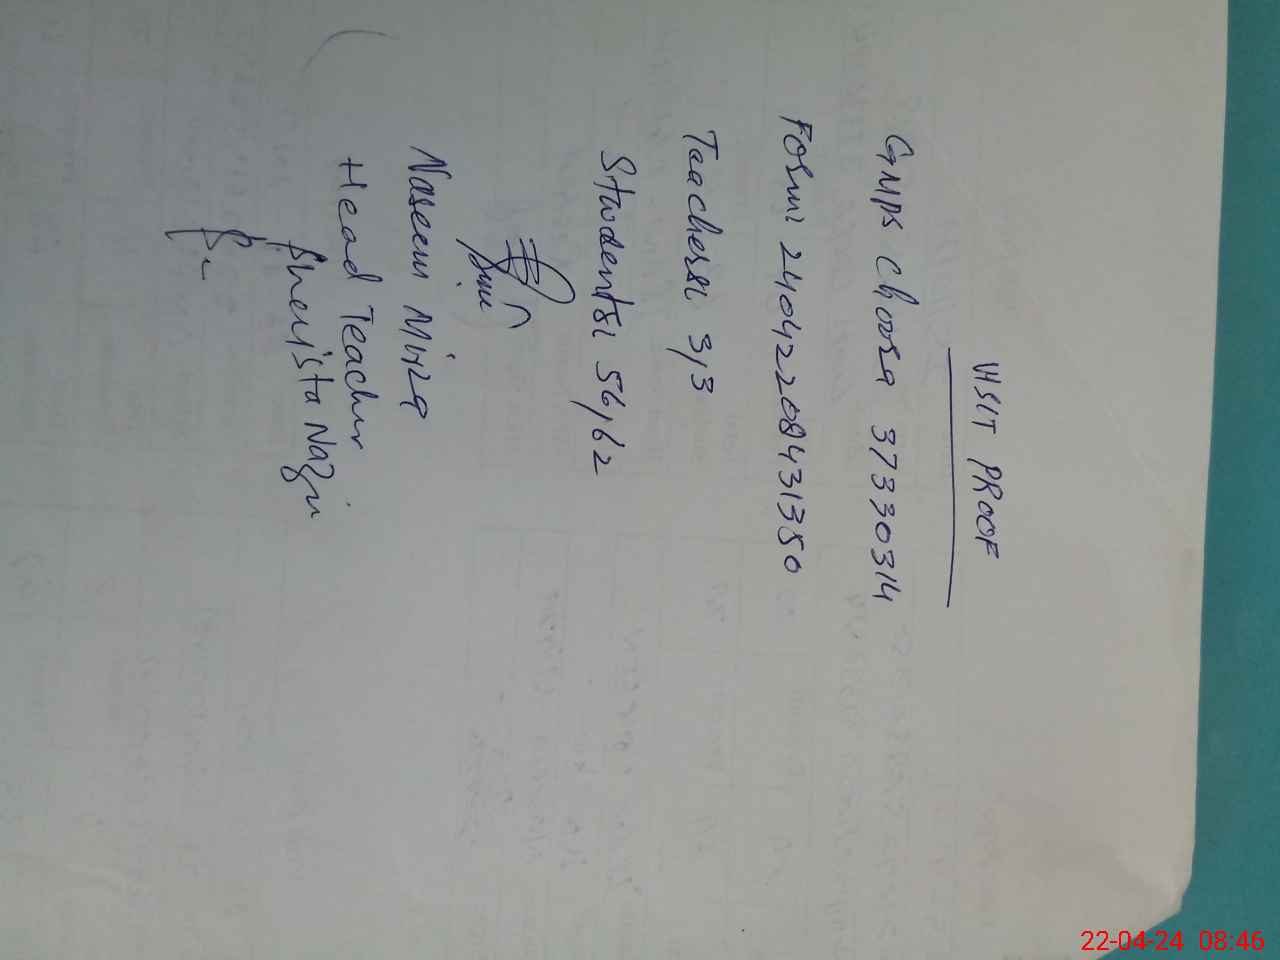 VISIT PROOF
GMPS Choora 37330314
Form: 24042208431350
Teachers: 3/3
Students: 56/62
Naseem Mirza
Head Teacher
22-04-24 08:46